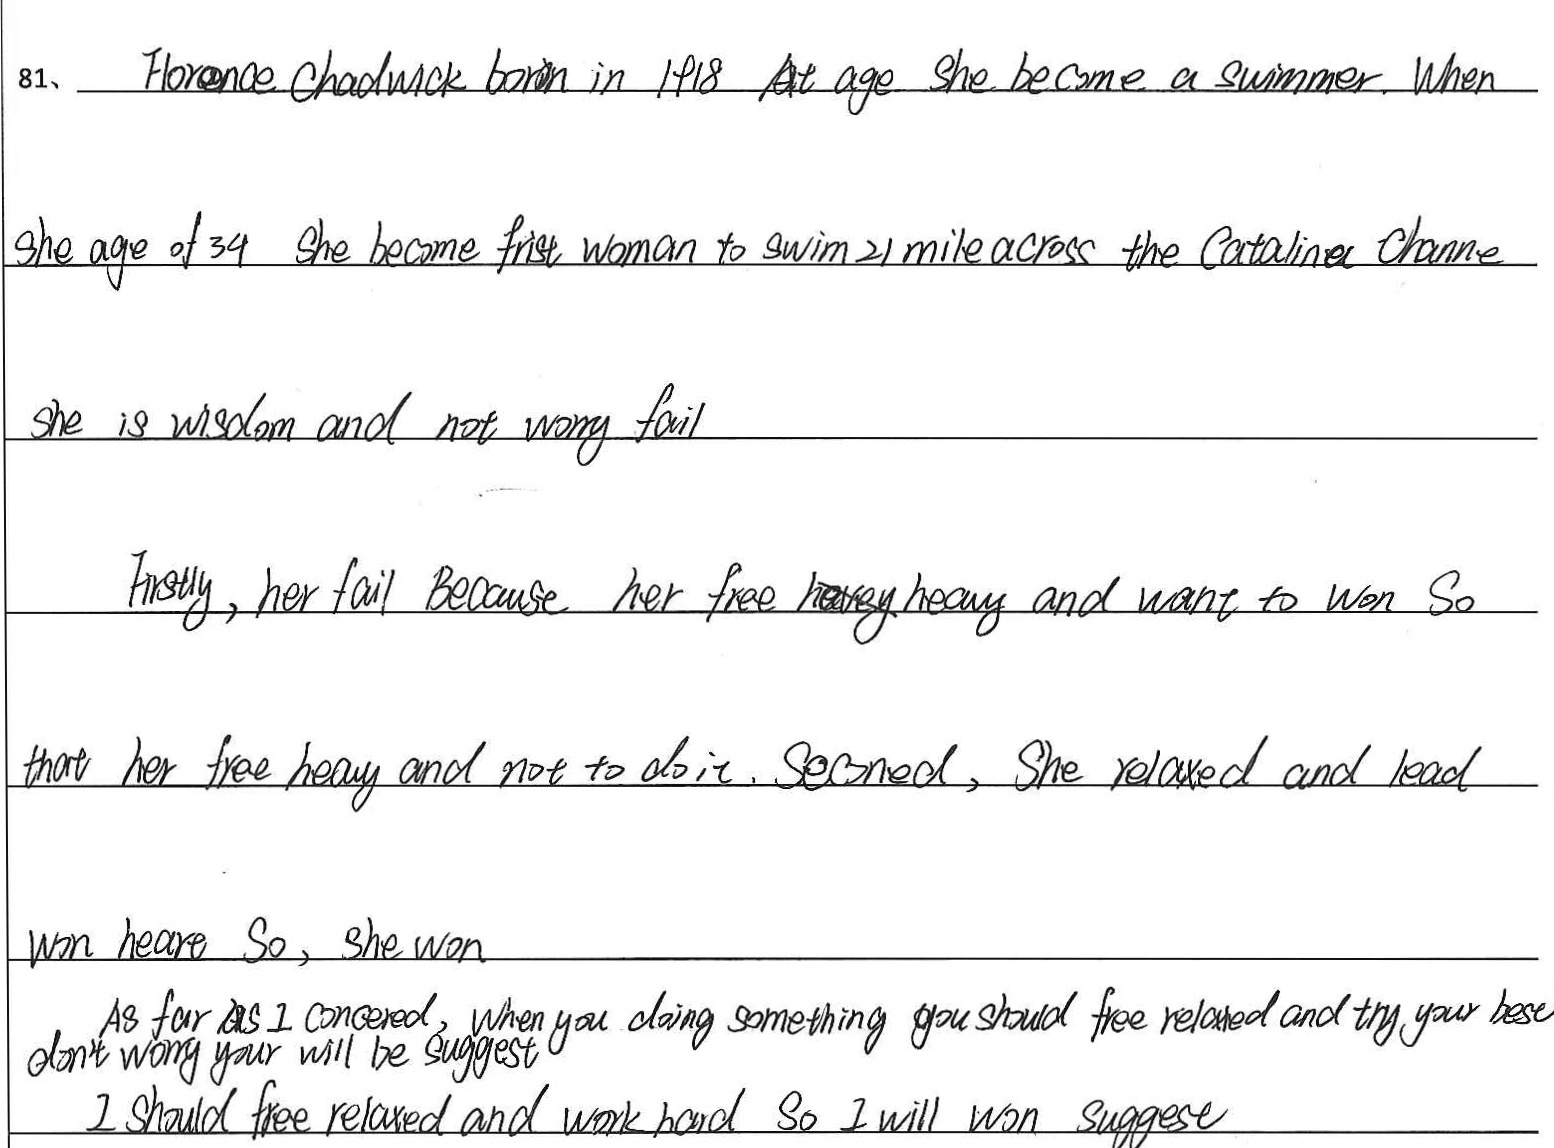 81、 Florence Chadwick born in 1918 At age She become a swimmer. When
she age of 34 She become frist woman to swim 21 mile across the Catalina Channe
she is wisdom and not worry fail
Firstly, her fail Because her free heavy and want to won So
that her free heavy and not to do it. Seconed, She relaxed and lead
won heare So, she won
As far as I concered, when you doing something you should free relaxed and try your best
don't worry your will be suggest
I should free relaxed and work hard So I will won suggest